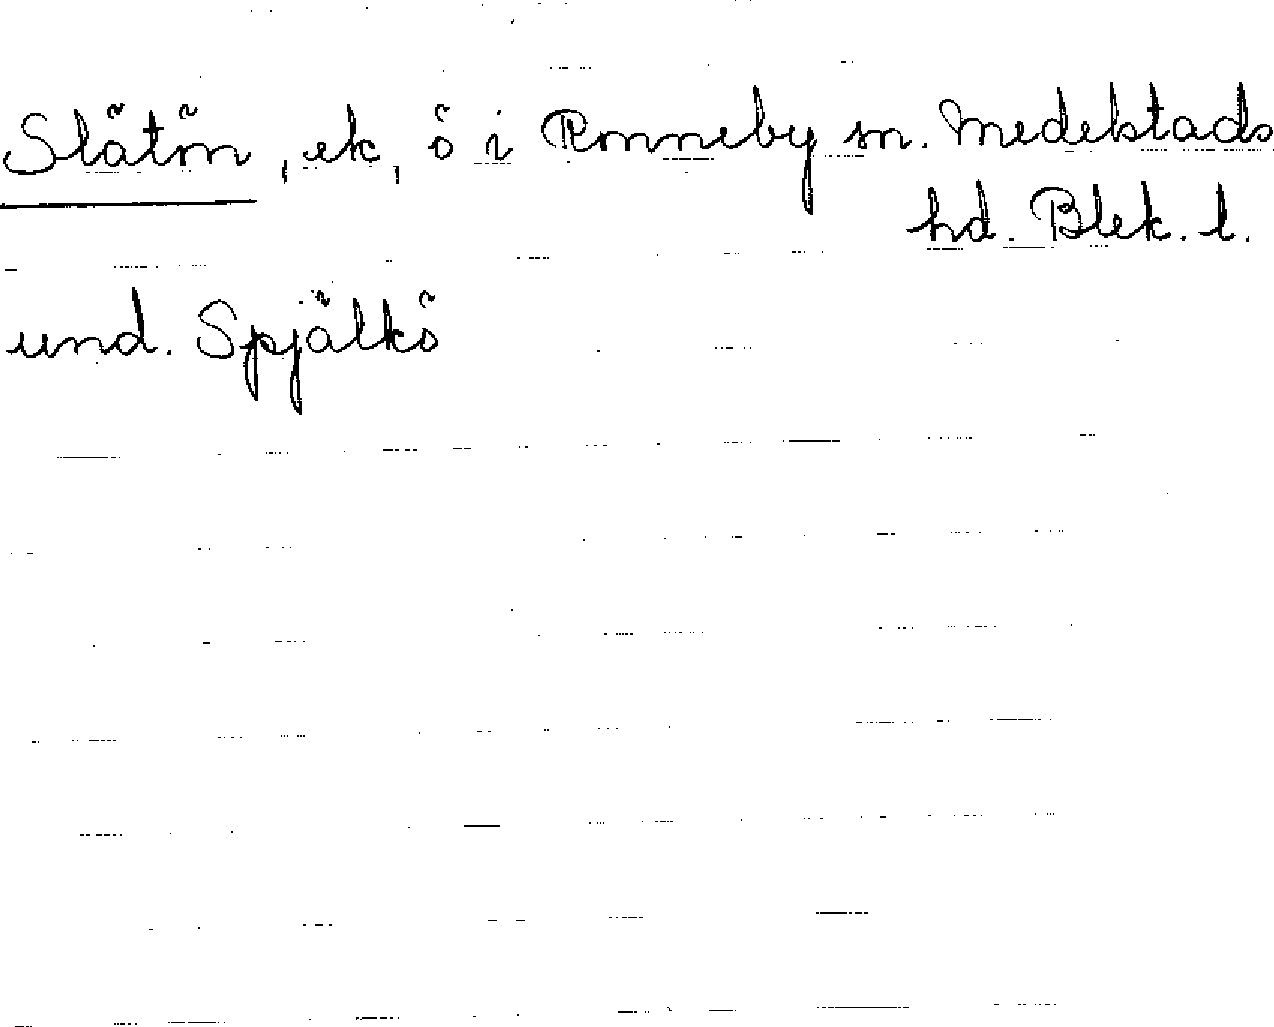 Slätön, ek, ö i Ronneby sn. Medelstads
hd. Blek. l.
und. Spjälkö